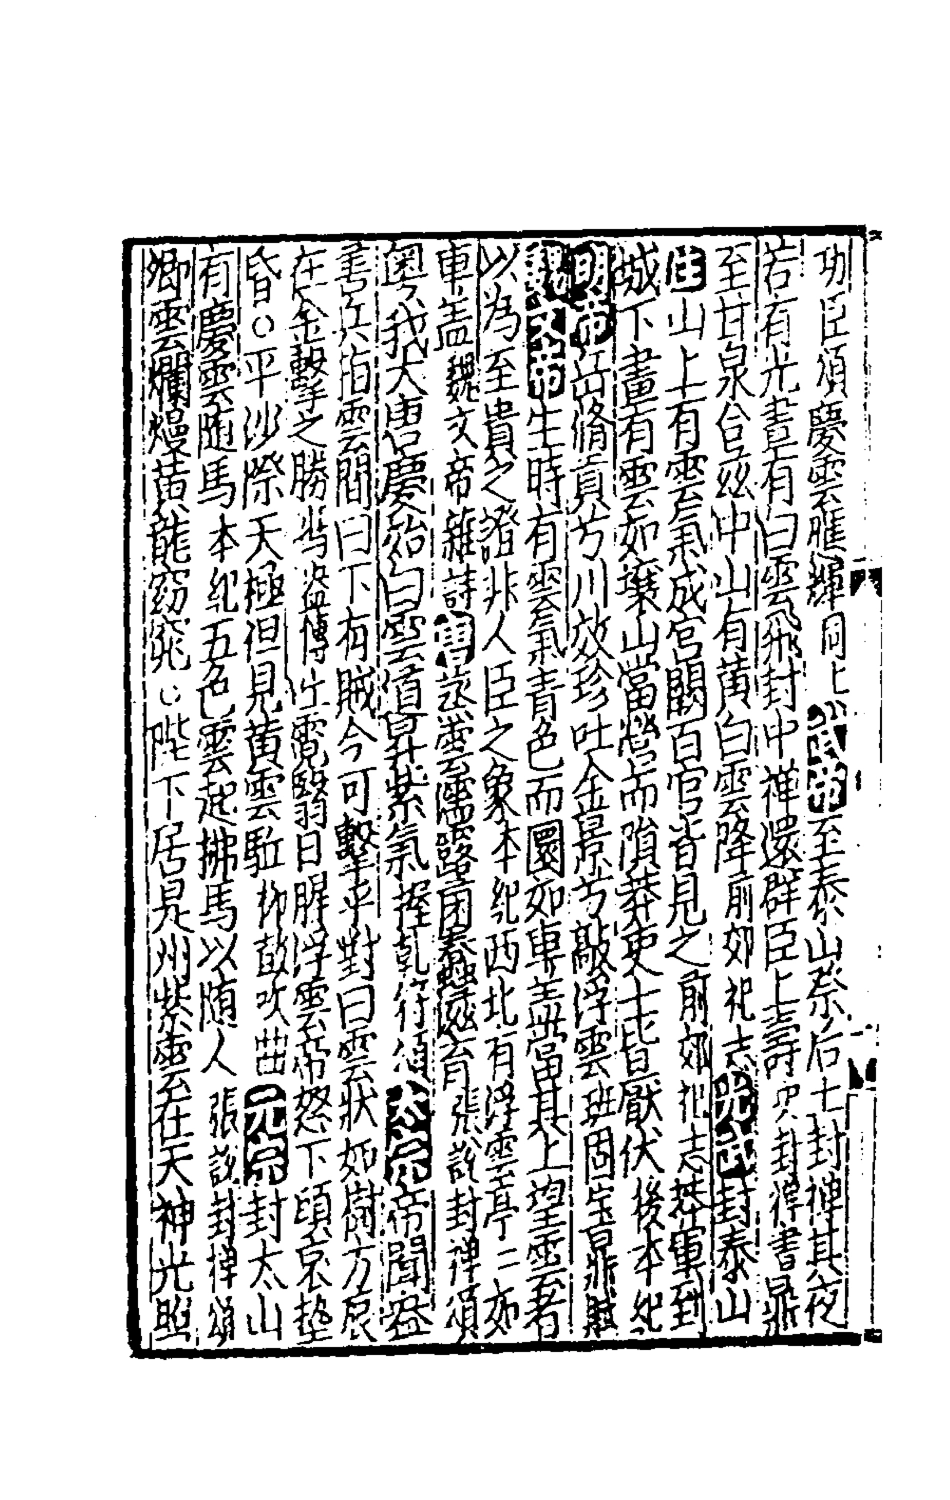 功臣頌慶雲應輝同上武帝至泰山祭后土封禅其夜
若有光晝有白雲飛封中禅還群臣上壽 封禅書鼎
至甘泉合兹中山有黄白雲降前郊祀志光武封泰山
山上有雲氣成宫闕百官皆見之前郊祀志 軍到
城下晝有雲如壞山當營而隕莽吏士皆厭伏後本紀
明帝岳脩貢兮川效珍吐金景兮敲浮雲班固宝鼎賦
魏文帝生時有雲氣青色而圜如車盖當其上望雲者
以為至貴之證非人臣之象本紀西北有浮雲亭二如
車盖魏文帝雜詩唐蒸雲濡露菌蠢 育張說封禅頌
粤我大唐慶始白雲道昇紫氣握乾符 太宗帝聞盗
善兵指雲問曰下有賊今可擊乎對曰雲狀如樹方辰
在金擊之勝 盗傳 霓翳日腥浮雲帝怒下頓哀墊
昏○平沙際天極但見黄雲駈柳 吹曲元宗封太山
有慶雲随馬本紀五色雲起拂馬以随人張說封禅頌
卿雲爛熳黄龍窈窕○陛下居是州紫雲在天神光照